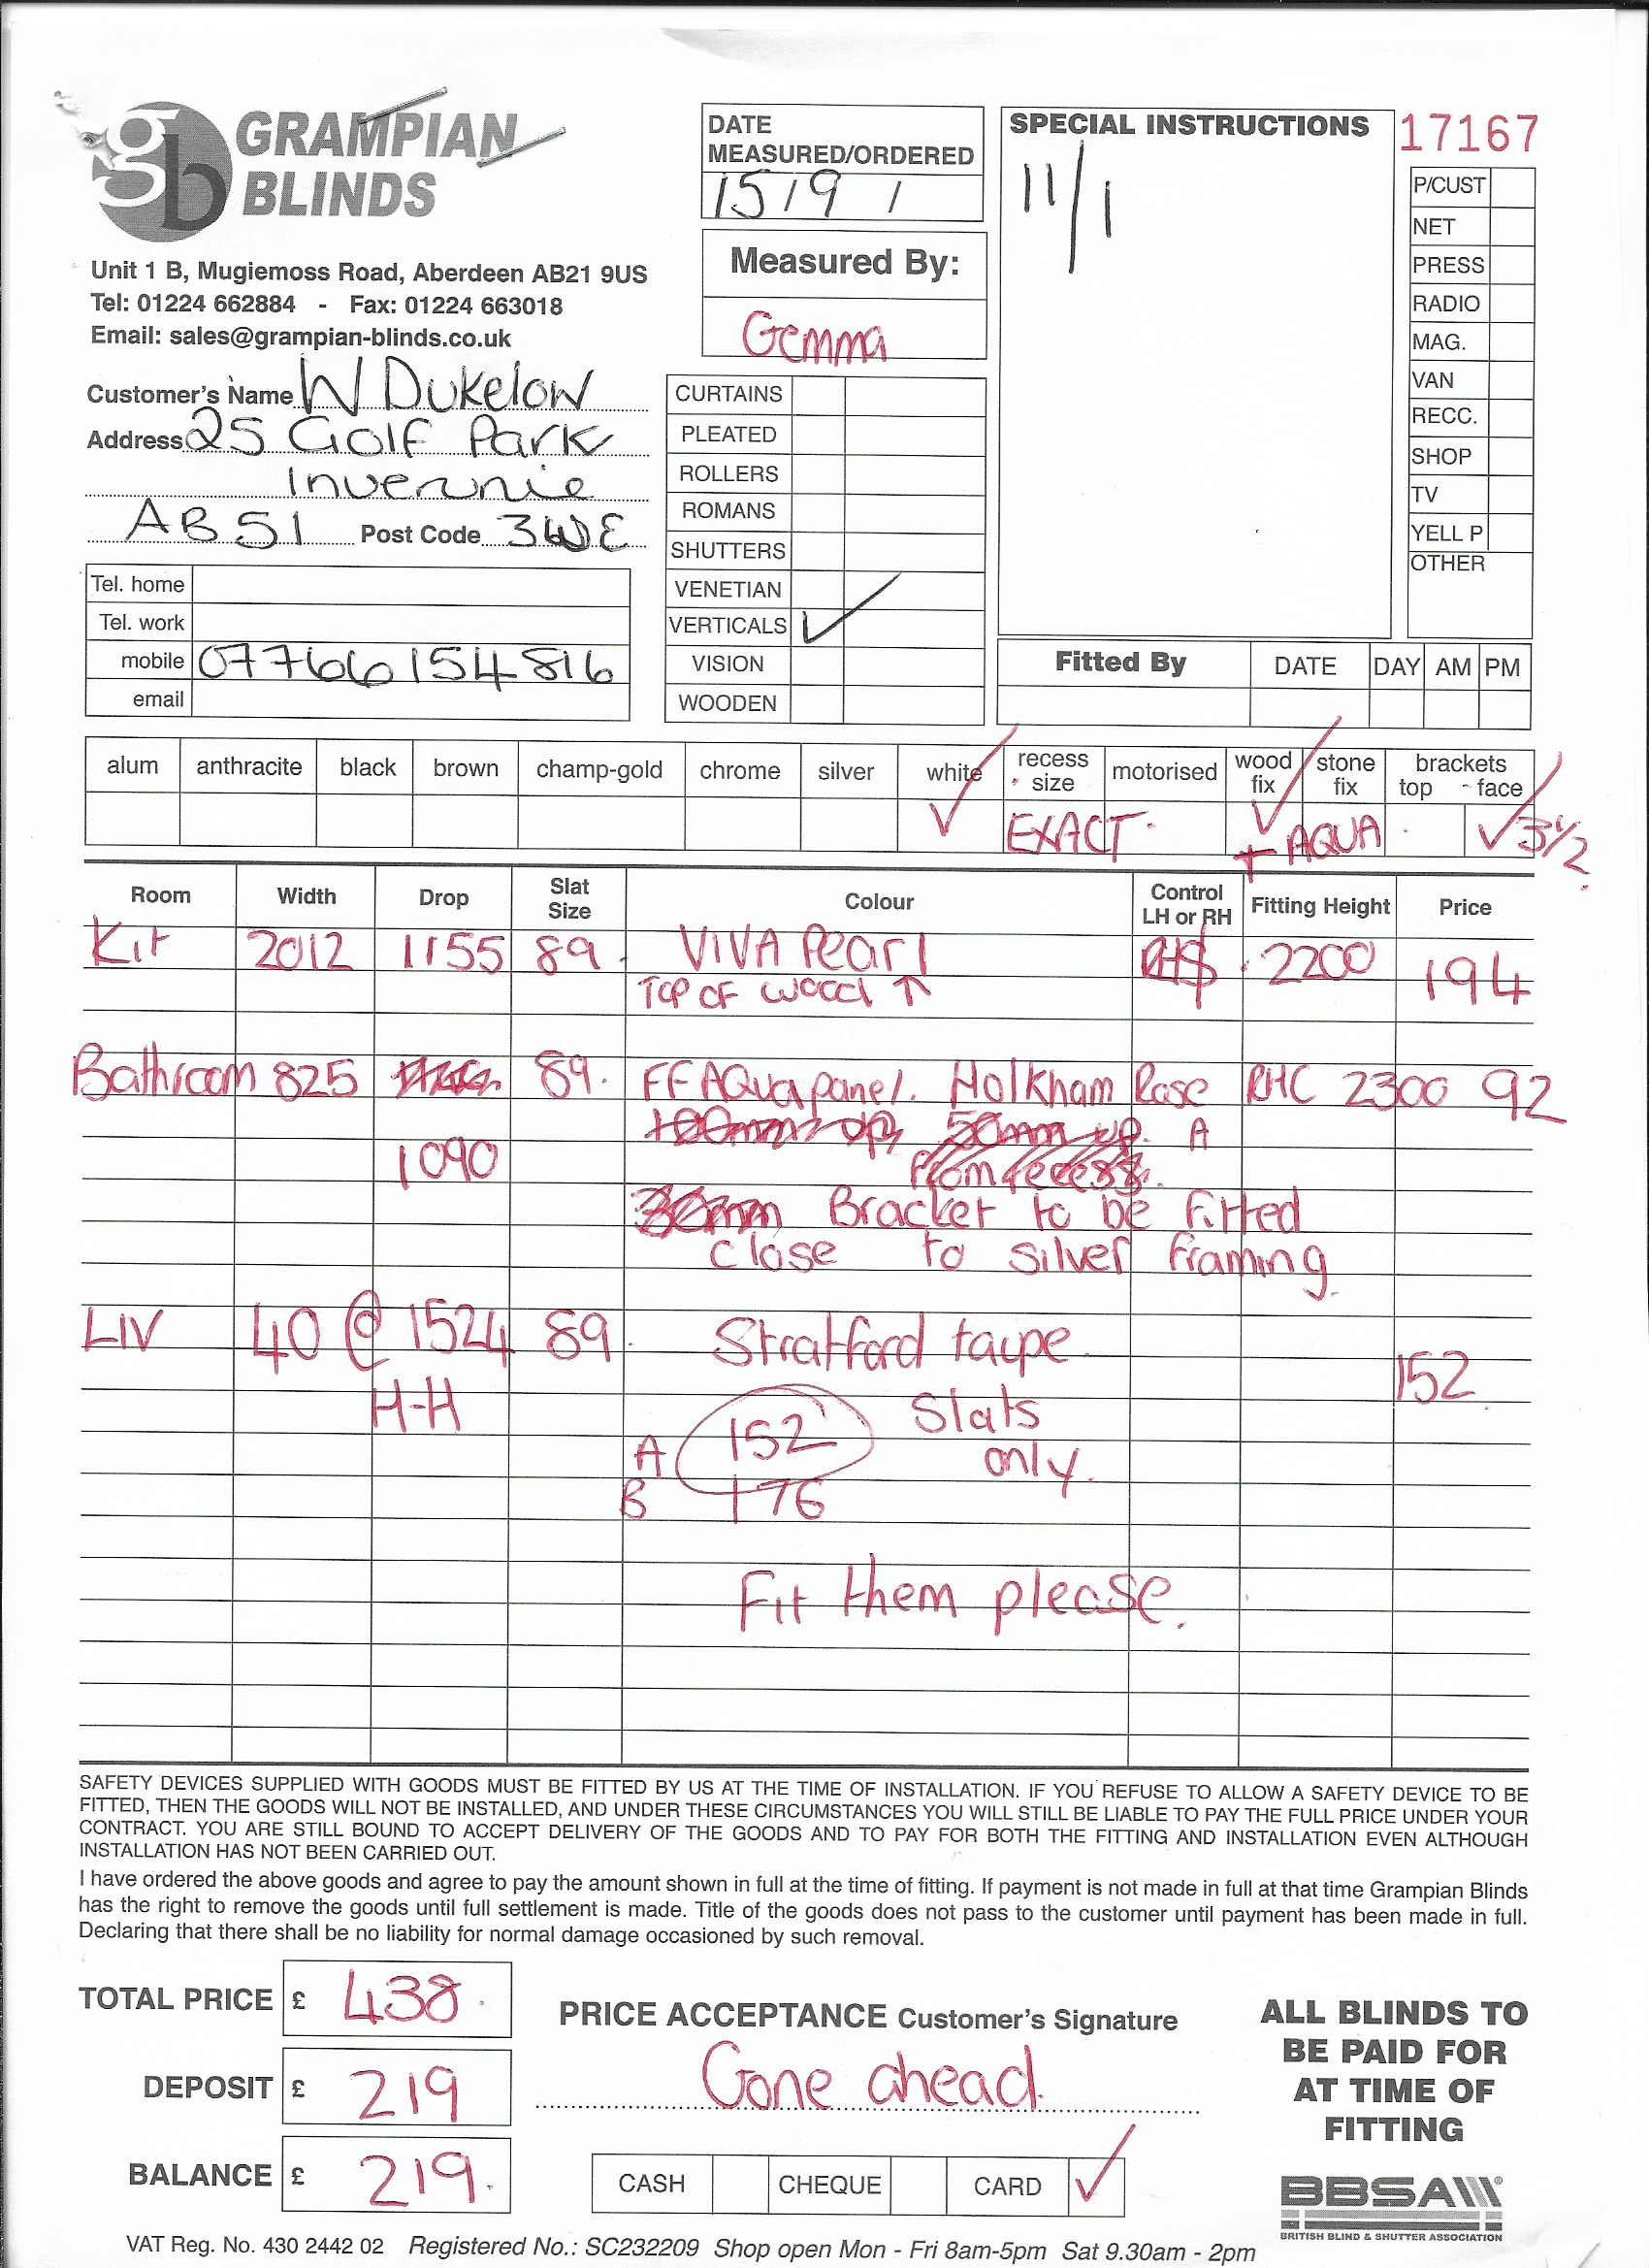 gb GRAMPIAN
BLINDS
Unit 1 B, Mugiemoss Road, Aberdeen AB21 9US
Tel: 01224 662884 - Fax: 01224 663018
Email: sales@grampian-blinds.co.uk
Customer's Name W Dukelow
Address 25 Golf Park
Inverurie
AB51 Post Code 3WE
Tel. home
Tel. work
mobile 07766154816
email
DATE
MEASURED/ORDERED
15/9/
Measured By:
Gemma
CURTAINS
PLEATED
ROLLERS
ROMANS
SHUTTERS
VENETIAN
VERTICALS ✓
VISION
WOODEN
SPECIAL INSTRUCTIONS
11/1
17167
P/CUST
NET
PRESS
RADIO
MAG.
VAN
RECC.
SHOP
TV
YELL P
OTHER
Fitted By DATE DAY AM PM
alum anthracite black brown champ-gold chrome silver white recess size motorised wood fix stone fix brackets top face
✓ EXACT ✓ + AQUA ✓ 3 1/2
Room Width Drop Slat Size Colour Control LH or RH Fitting Height Price
Kit 2012 1155 89 VIVA Pearl 2200 194
TOP OF WOOD ↑
Bathroom 825 89. FF AQuapanel. Holkham Rose RHC 2300 92
100mm 50mm up. A
1090 From recess.
30mm Bracket to be fitted
close to silver framing.
LIV 40 @ 1524 89. Stratford taupe
152
H-H Slats
A 152 only.
B 176
Fit them please.
SAFETY DEVICES SUPPLIED WITH GOODS MUST BE FITTED BY US AT THE TIME OF INSTALLATION. IF YOU REFUSE TO ALLOW A SAFETY DEVICE TO BE
FITTED, THEN THE GOODS WILL NOT BE INSTALLED, AND UNDER THESE CIRCUMSTANCES YOU WILL STILL BE LIABLE TO PAY THE FULL PRICE UNDER YOUR
CONTRACT. YOU ARE STILL BOUND TO ACCEPT DELIVERY OF THE GOODS AND TO PAY FOR BOTH THE FITTING AND INSTALLATION EVEN ALTHOUGH
INSTALLATION HAS NOT BEEN CARRIED OUT.
I have ordered the above goods and agree to pay the amount shown in full at the time of fitting. If payment is not made in full at that time Grampian Blinds
has the right to remove the goods until full settlement is made. Title of the goods does not pass to the customer until payment has been made in full.
Declaring that there shall be no liability for normal damage occasioned by such removal.
TOTAL PRICE £ 438.
DEPOSIT £ 219
BALANCE £ 219.
PRICE ACCEPTANCE Customer's Signature
Gone ahead.
CASH CHEQUE CARD ✓
ALL BLINDS TO
BE PAID FOR
AT TIME OF
FITTING
BBSA
BRITISH BLIND & SHUTTER ASSOCIATION
VAT Reg. No. 430 2442 02 Registered No.: SC232209 Shop open Mon - Fri 8am-5pm Sat 9.30am - 2pm